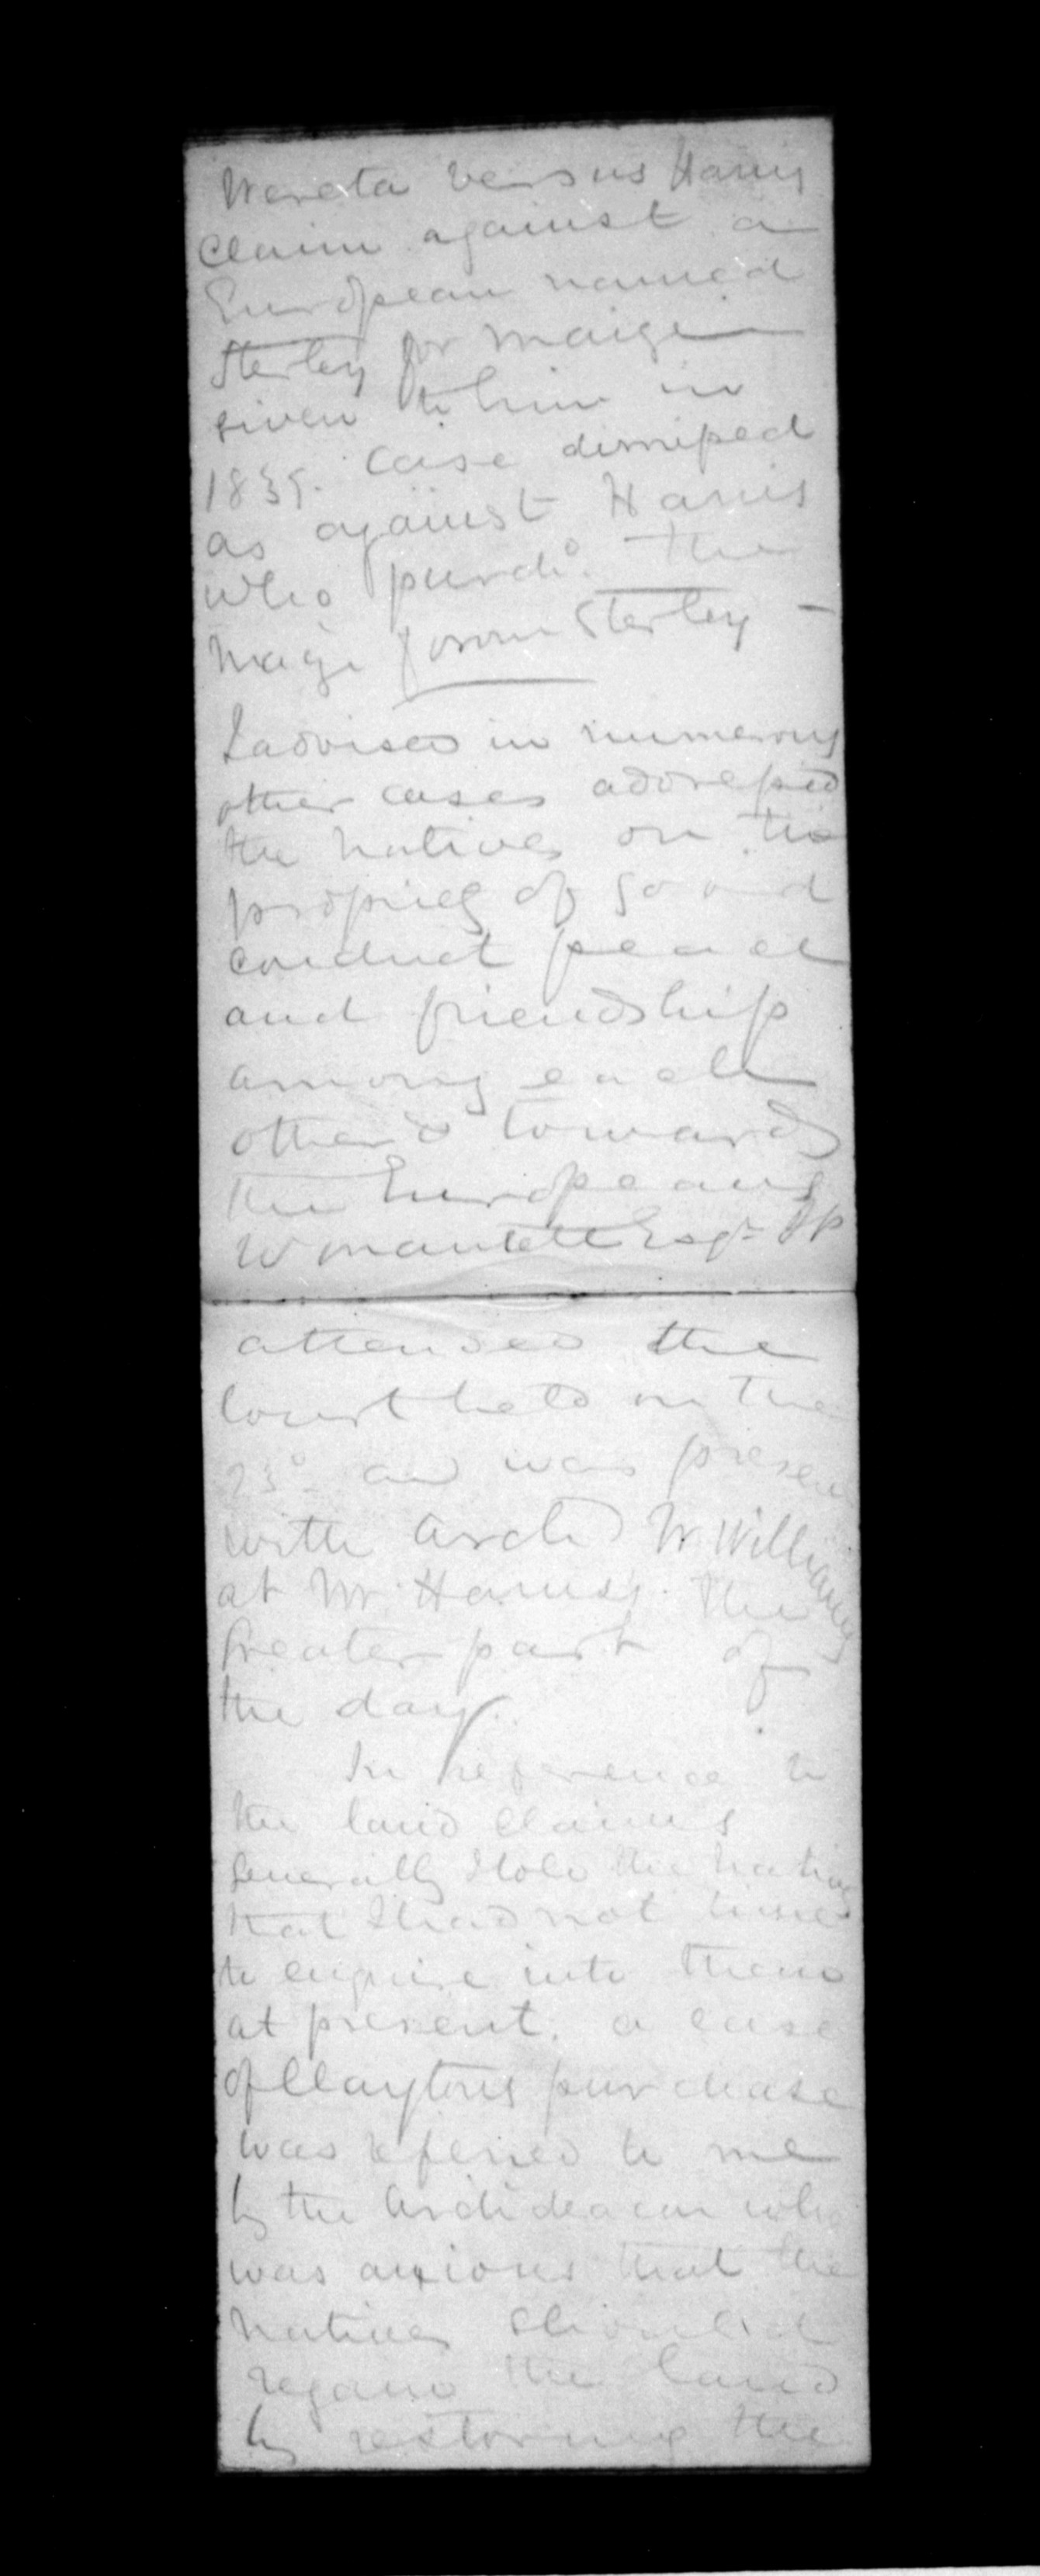 Wereta versus Harris
Claim against a
European named
Sterley for maize
given to him in
1839. Case dismissed
as against Harris
who purchd. the
maize from Sterley –
I advised in numerous
other cases addressed
the natives on the
propriety of good
conduct peace
and friendship
among each
other & towards
the Europeans
W Esqr JP
attended the
Court held on the
23d. and was present
with Archd W Williams
at Mr Harris's. the
greater part of
the day.
In reference to
the land claims
generally I told the natives
that I had not time
to enquire into them
at present. a case
of Claytons purchase
was referred to me
by the Archdeacon who
was anxious that the
natives should
regain the land
by restoring the